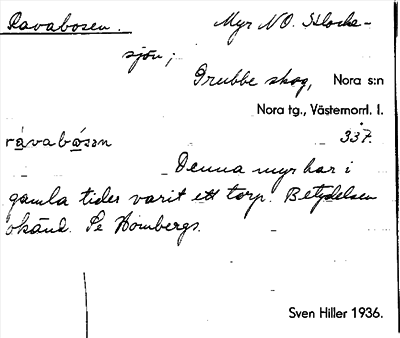 Ravabosen. Myr NO. Klocka-
sjön;
Grubbe skog, Nora s:n
Nora tg., Västernorrl. l.
råvabωsən 337.
Denna myr har i
gamla tider varit ett torp. Betydelsen
okänd. Se Hornbergs.
Sven Hiller 1936.